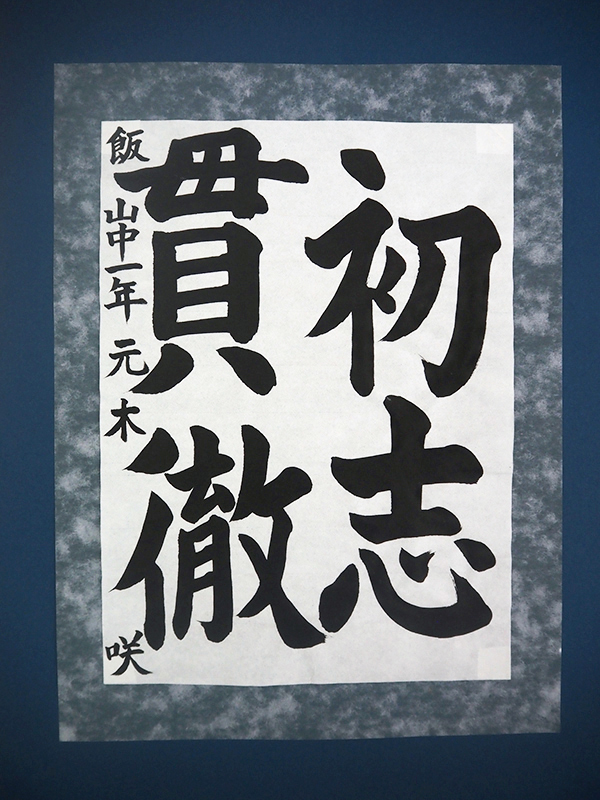 初志
貫徹
飯山中一年 元木 咲